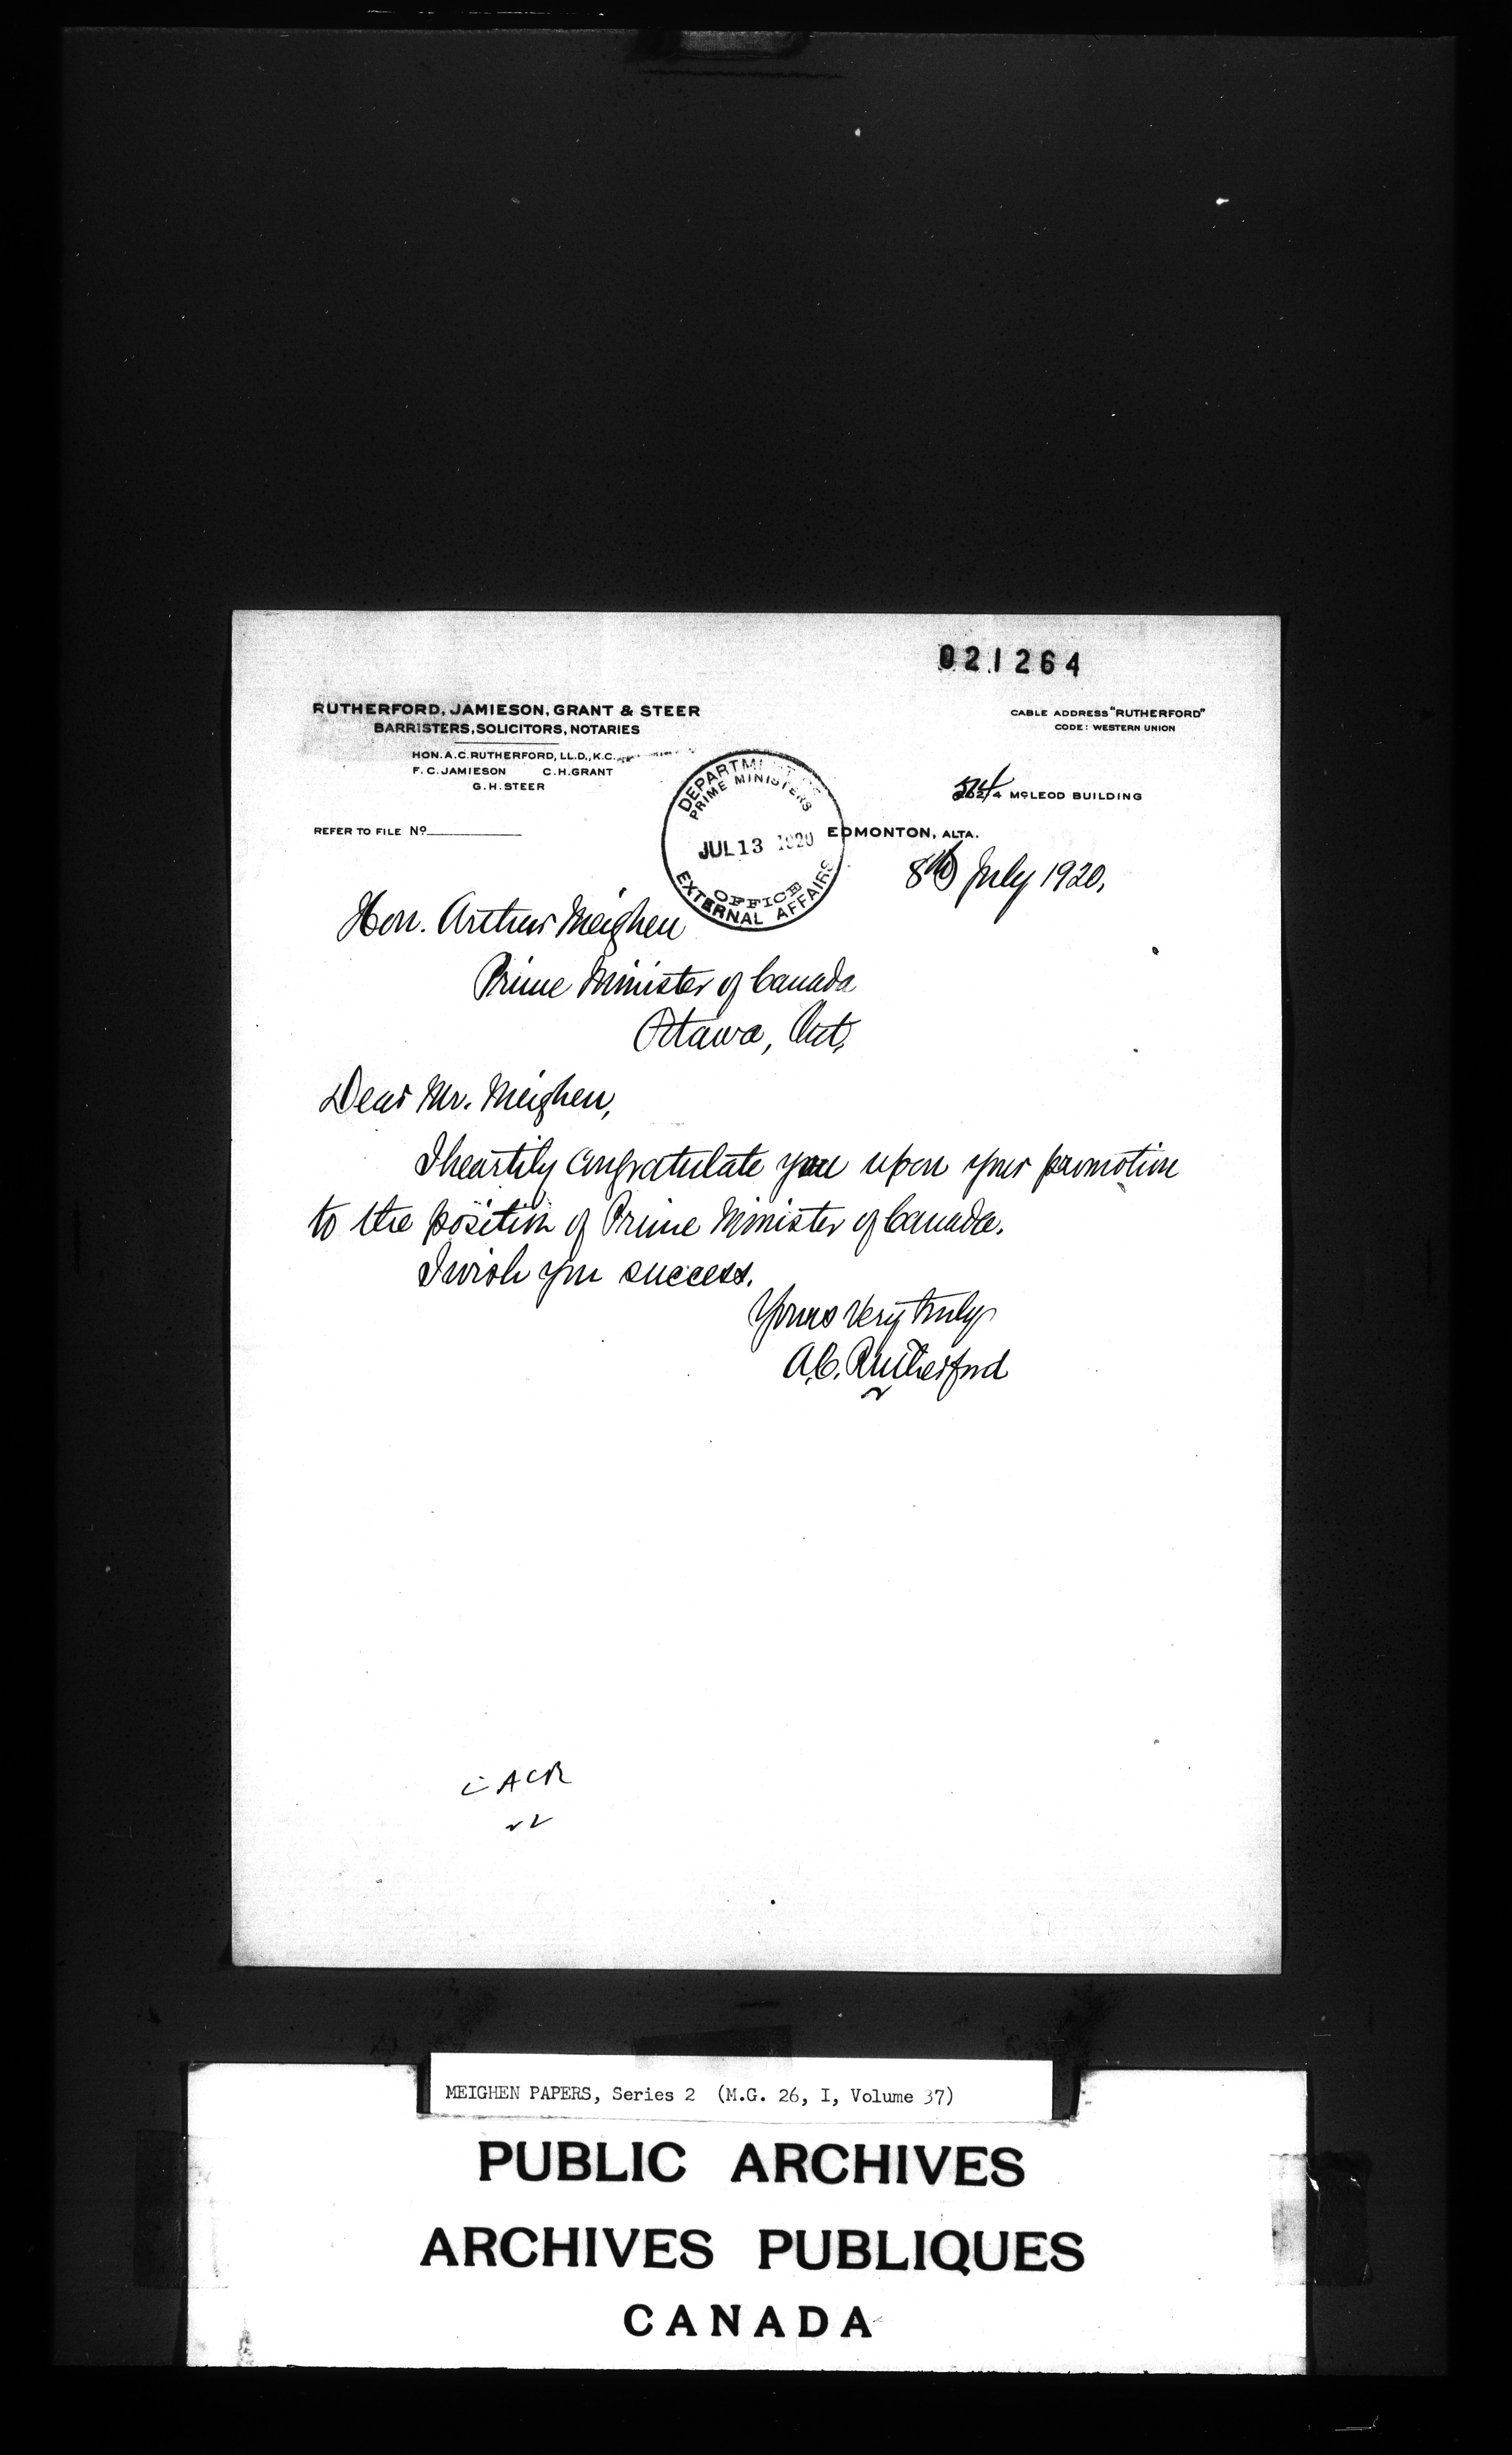 021264
RUTHERFORD, JAMIESON, GRANT & STEER
BARRISTERS, SOLICITORS, NOTARIES
HON. A. C. RUTHERFORD, LL.D., K.C.
F. C. JAMIESON C. H. GRANT
G. H. STEER
REFER TO FILE No
CABLE ADDRESS "RUTHERFORD"
CODE: WESTERN UNION
McLEOD BUILDING
EDMONTON, ALTA.
DEPARTMENT OF
PRIME MINISTERS
JUL 13 1920
OFFICE
EXTERNAL AFFAIRS
8th July 1920.
Hon. Arthur Meighen
Prime Minister of Canada
Ottawa, Ont.
Dear Mr. Meighen,
I heartily congratulate you upon your promotion
to the position of Prime Minister of Canada.
I wish you success.
Yours very truly
A.C. Rutherford
ACR
MEIGHEN PAPERS, Series 2 (M.G. 26, I, Volume 37)
PUBLIC ARCHIVES
ARCHIVES PUBLIQUES
CANADA